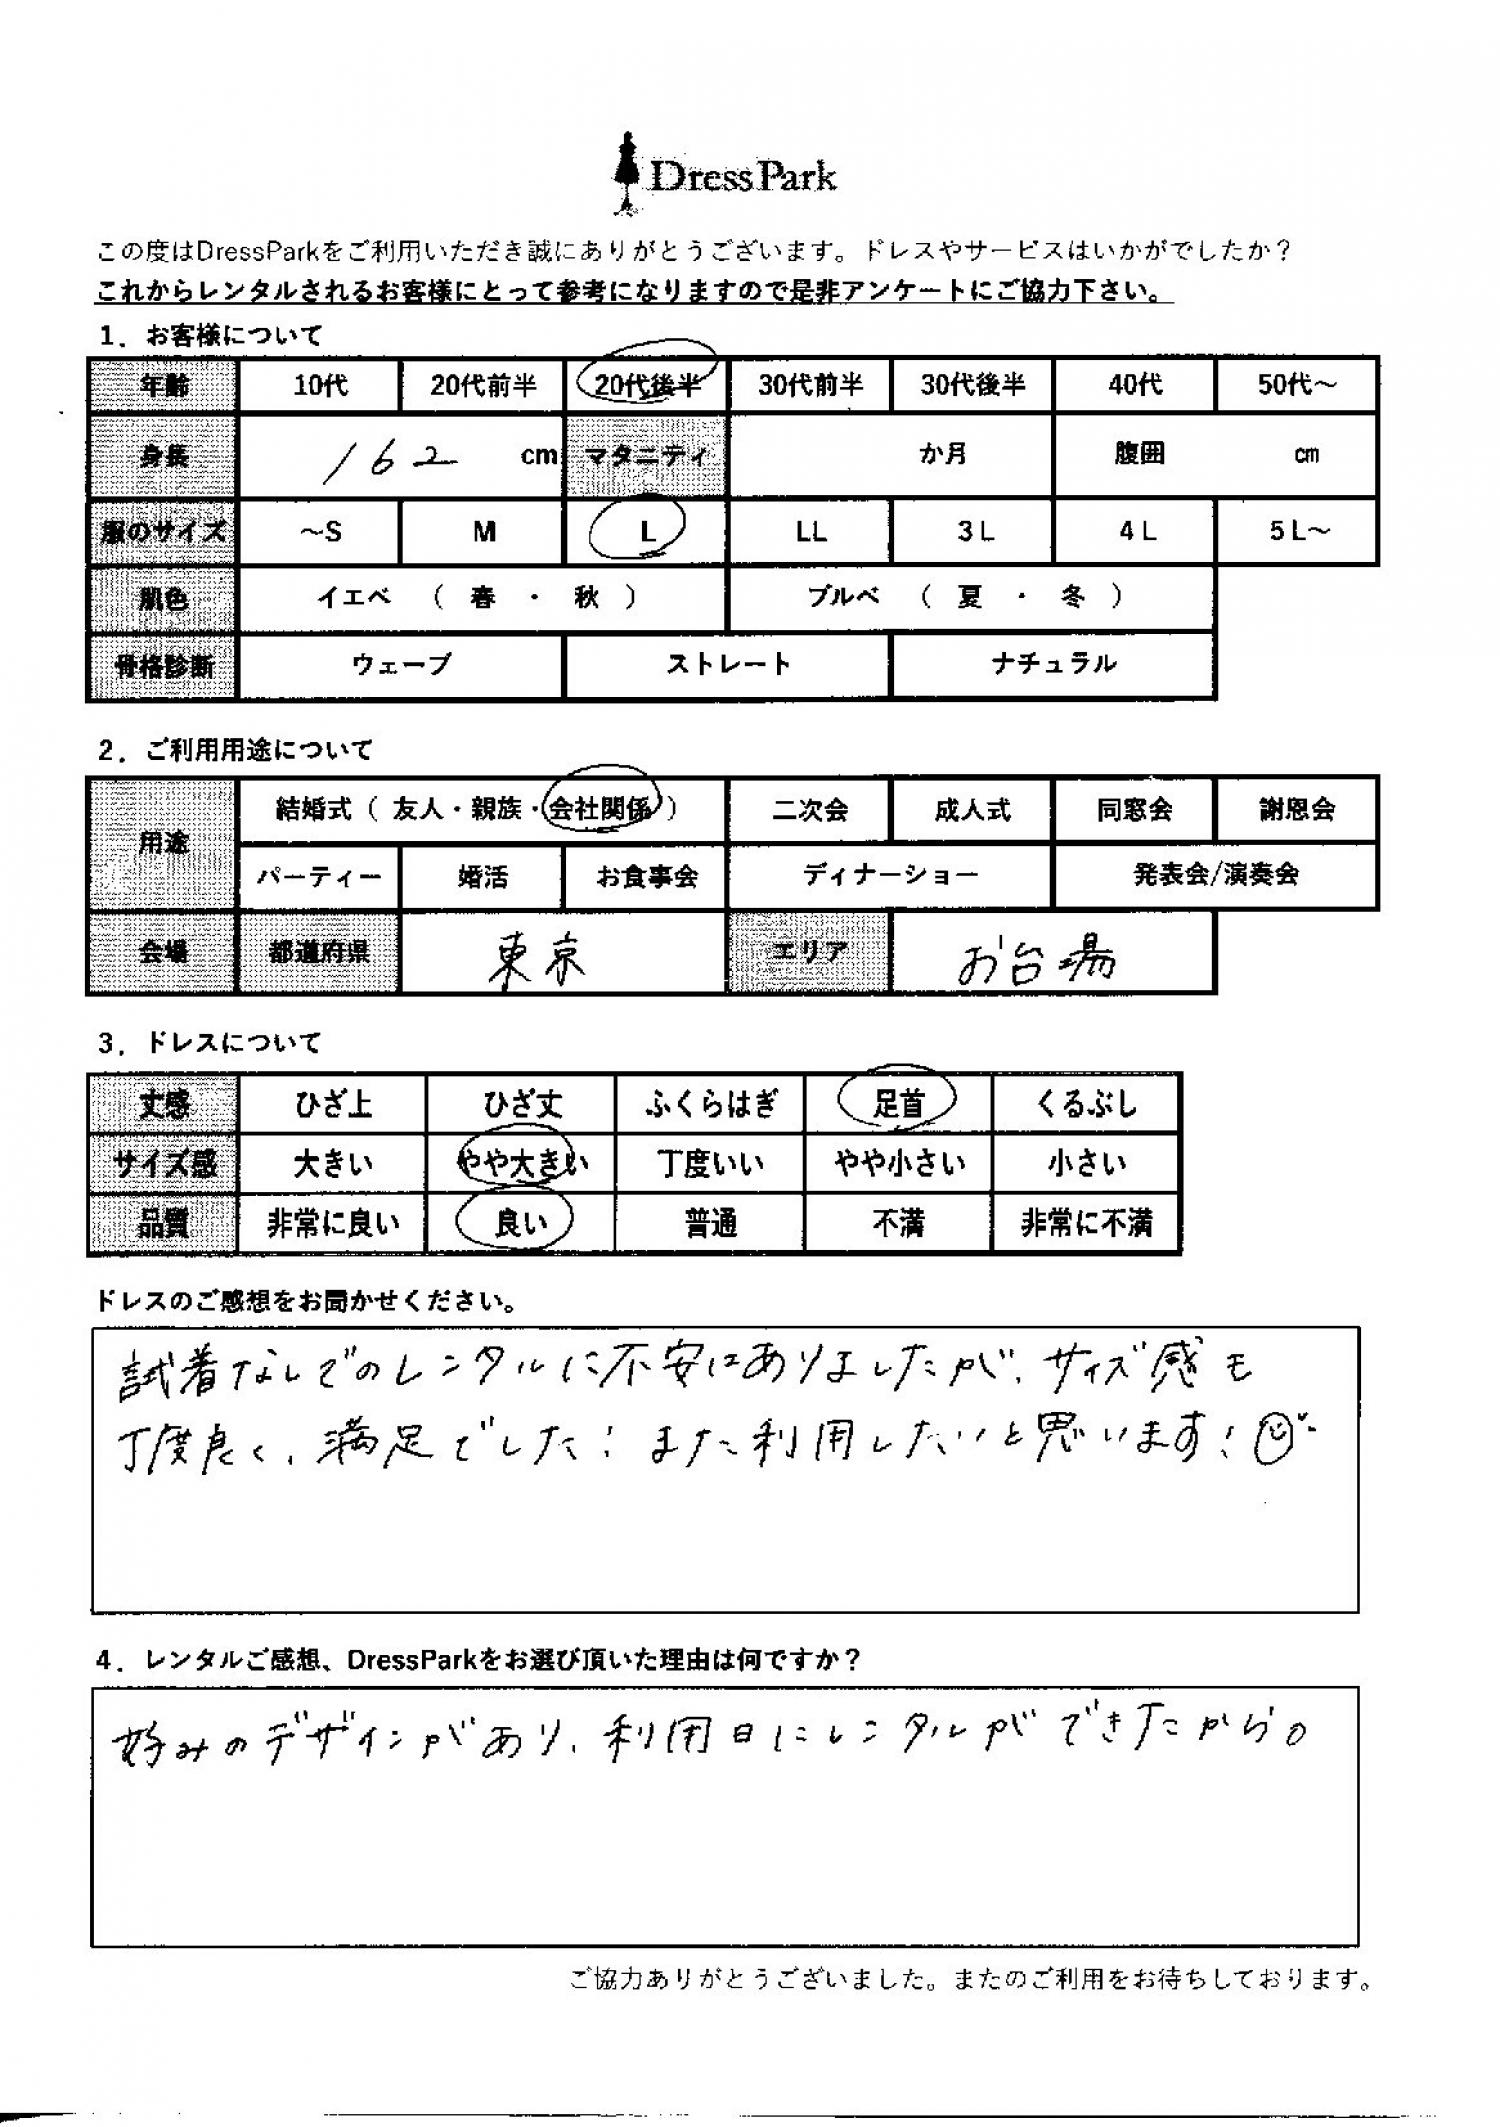 DressPark
この度はDressParkをご利用いただき誠にありがとうございます。ドレスやサービスはいかがでしたか？
これからレンタルされるお客様にとって参考になりますので是非アンケートにご協力下さい。
1．お客様について
年齢 10代 20代前半 20代後半 30代前半 30代後半 40代 50代～
身長 162 cm マタニティ か月 腹囲 cm
服のサイズ ～S M L LL 3L 4L 5L～
肌色 イエベ （ 春 ・ 秋 ） ブルベ （ 夏 ・ 冬 ）
骨格診断 ウェーブ ストレート ナチュラル
2．ご利用用途について
用途 結婚式（ 友人・親族・会社関係 ） 二次会 成人式 同窓会 謝恩会
パーティー 婚活 お食事会 ディナーショー 発表会/演奏会
会場 都道府県 東京 エリア お台場
3．ドレスについて
丈感 ひざ上 ひざ丈 ふくらはぎ 足首 くるぶし
サイズ感 大きい やや大きい 丁度いい やや小さい 小さい
品質 非常に良い 良い 普通 不満 非常に不満
ドレスのご感想をお聞かせください。
試着なしでのレンタルに不安はありましたが、サイズ感も
丁度良く、満足でした！また利用したいと思います！
4．レンタルご感想、DressParkをお選び頂いた理由は何ですか？
好みのデザインがあり、利用日にレンタルができたから。
ご協力ありがとうございました。またのご利用をお待ちしております。